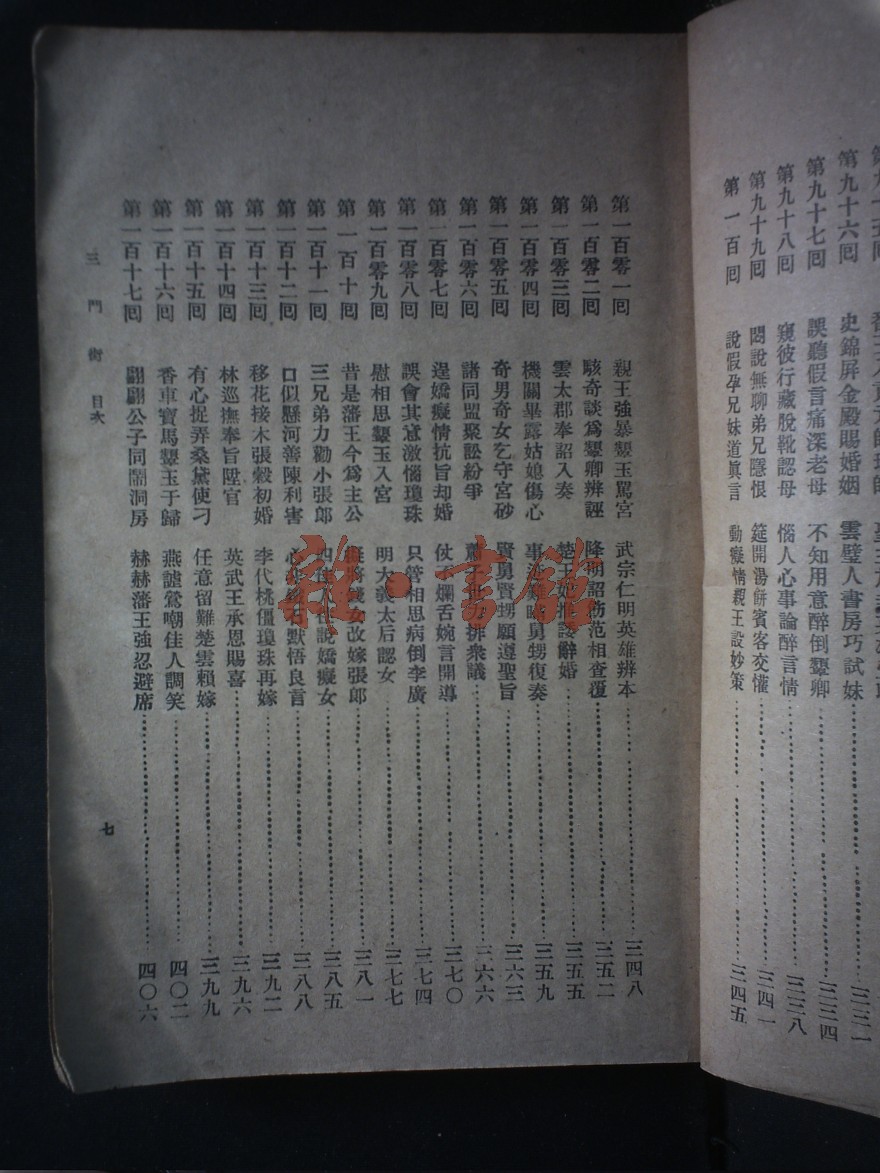 第九十六囘 史錦屏金殿賜婚姻 雲璧人書房巧試妹 三三一
第九十七囘 誤聽假言痛深老母 不知用意醉倒顰卿 三三四
第九十八囘 窺彼行藏脫靴認母 惱人心事論醉言情 三三八
第九十九囘 悶說無聊弟兄隱恨 筵開湯餅賓客交懽 三四一
第一百囘 說假孕兄妹道眞言 動癡情親王設妙策 三四五
第一百零一囘 親王強暴顰玉罵宮 武宗仁明英雄辨本 三四八
第一百零二囘 駭奇談爲顰卿辨誣 降明詔飭范相查覆 三五二
第一百零三囘 雲太郡奉詔入奏 楚王妃推諉辭婚 三五五
第一百零四囘 機關畢露姑媳傷心 事涉難舅甥復奏 三五九
第一百零五囘 奇男奇女乞守宮砂 賢舅賢甥願遵聖旨 三六三
第一百零六囘 諸同盟聚訟紛爭 蕭世子力排衆議 三六六
第一百零七囘 逞嬌癡情抗旨却婚 仗不爛舌婉言開導 三七〇
第一百零八囘 誤會其意激惱瓊珠 只管相思病倒李廣 三七四
第一百零九囘 慰相思顰玉入宮 明大義太后認女 三七七
第一百十囘 昔是藩王今爲主公 將錢女改嫁張郎 三八一
第一百十一囘 三兄弟力勸小張郎 四佳人說嬌癡女 三八五
第一百十二囘 口似懸河善陳利害 心石默悟良言 三八八
第一百十三囘 移花接木張穀初婚 李代桃僵瓊珠再嫁 三九二
第一百十四囘 林巡撫奉旨陞官 英武王承恩賜喜 三九六
第一百十五囘 有心捉弄桑黛使刁 任意留難楚雲賴嫁 三九九
第一百十六囘 香車寶馬顰玉于歸 燕謔鶯嘲佳人調笑 四〇二
第一百十七囘 翩翩公子同鬧洞房 赫赫藩王強忍避席 四〇六
三門街 目次
七
雜·書館